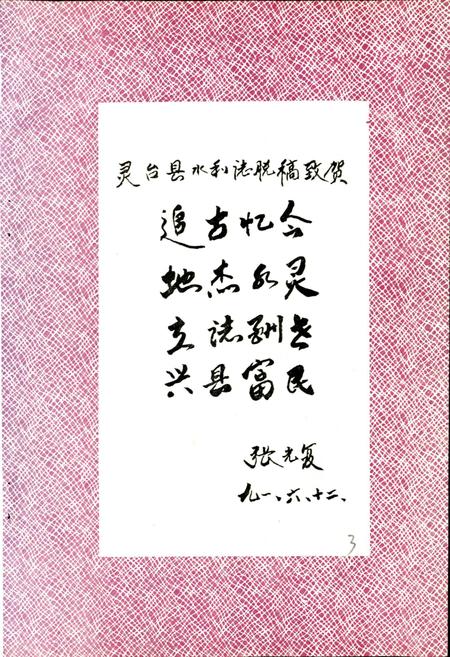 灵台县水利誌脱稿致贺
追古忆今
地杰水灵
立誌酬志
兴县富民
张光复
九一、六、十二、
3